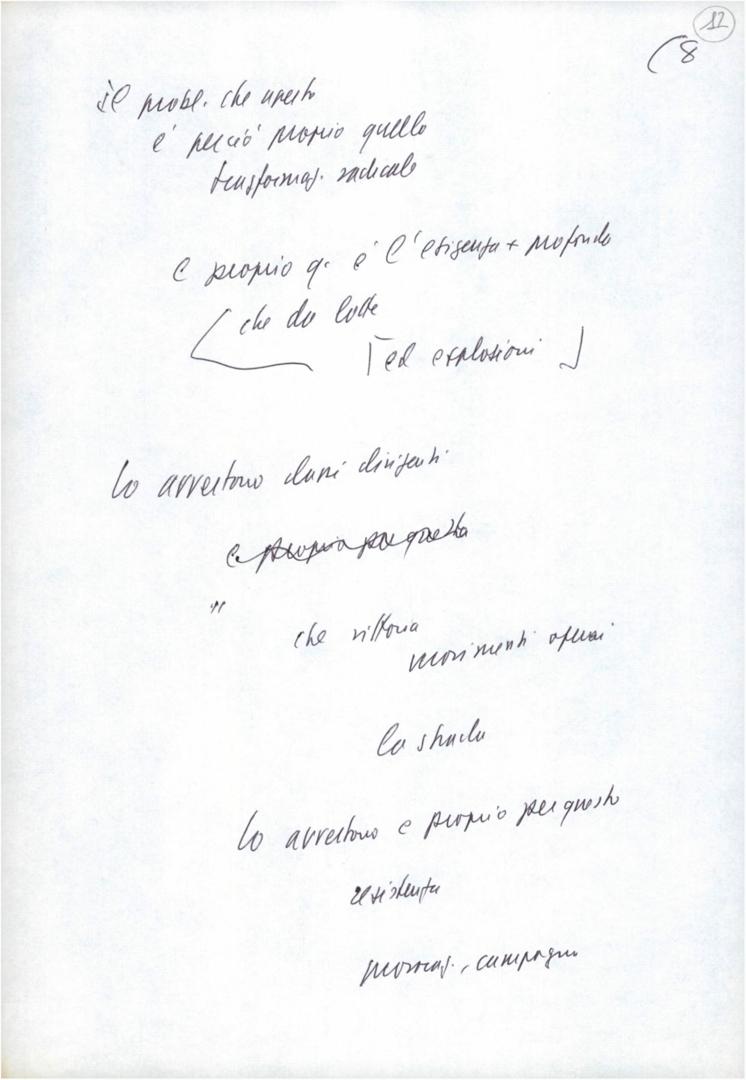 12
(8
il probl. che aperto
è perciò proprio quello
trasformaz. radicale
e proprio q. è l'esigenza + profonda
che da lotte
ed esplosioni
lo avvertono dirigenti
e proprio per questo
"
che vittoria
movimenti operai
la strada
lo avvertono e proprio per questo
resistenza
provocaz., campagna